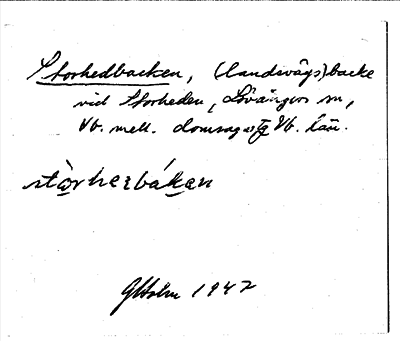 Storhedbacken, (landsvägs)backe
vid Storheden, Lövångers sn,
Vb. mell. domsaga, Vb. län.
stòrherbáken
GHolm 1947